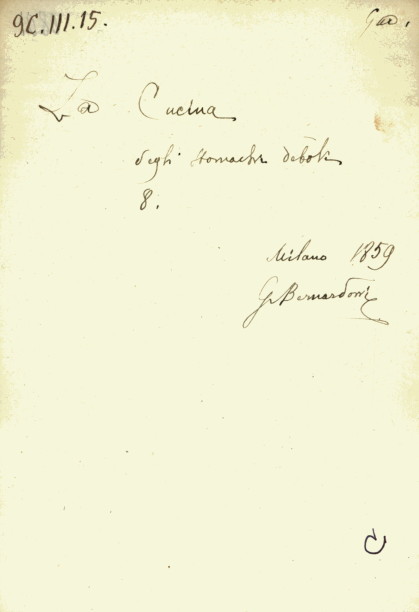 9C.III.15.
Gas.
La Cucina
degli stomachi deboli
8.
Milano 1859
G. Bernardoni
C